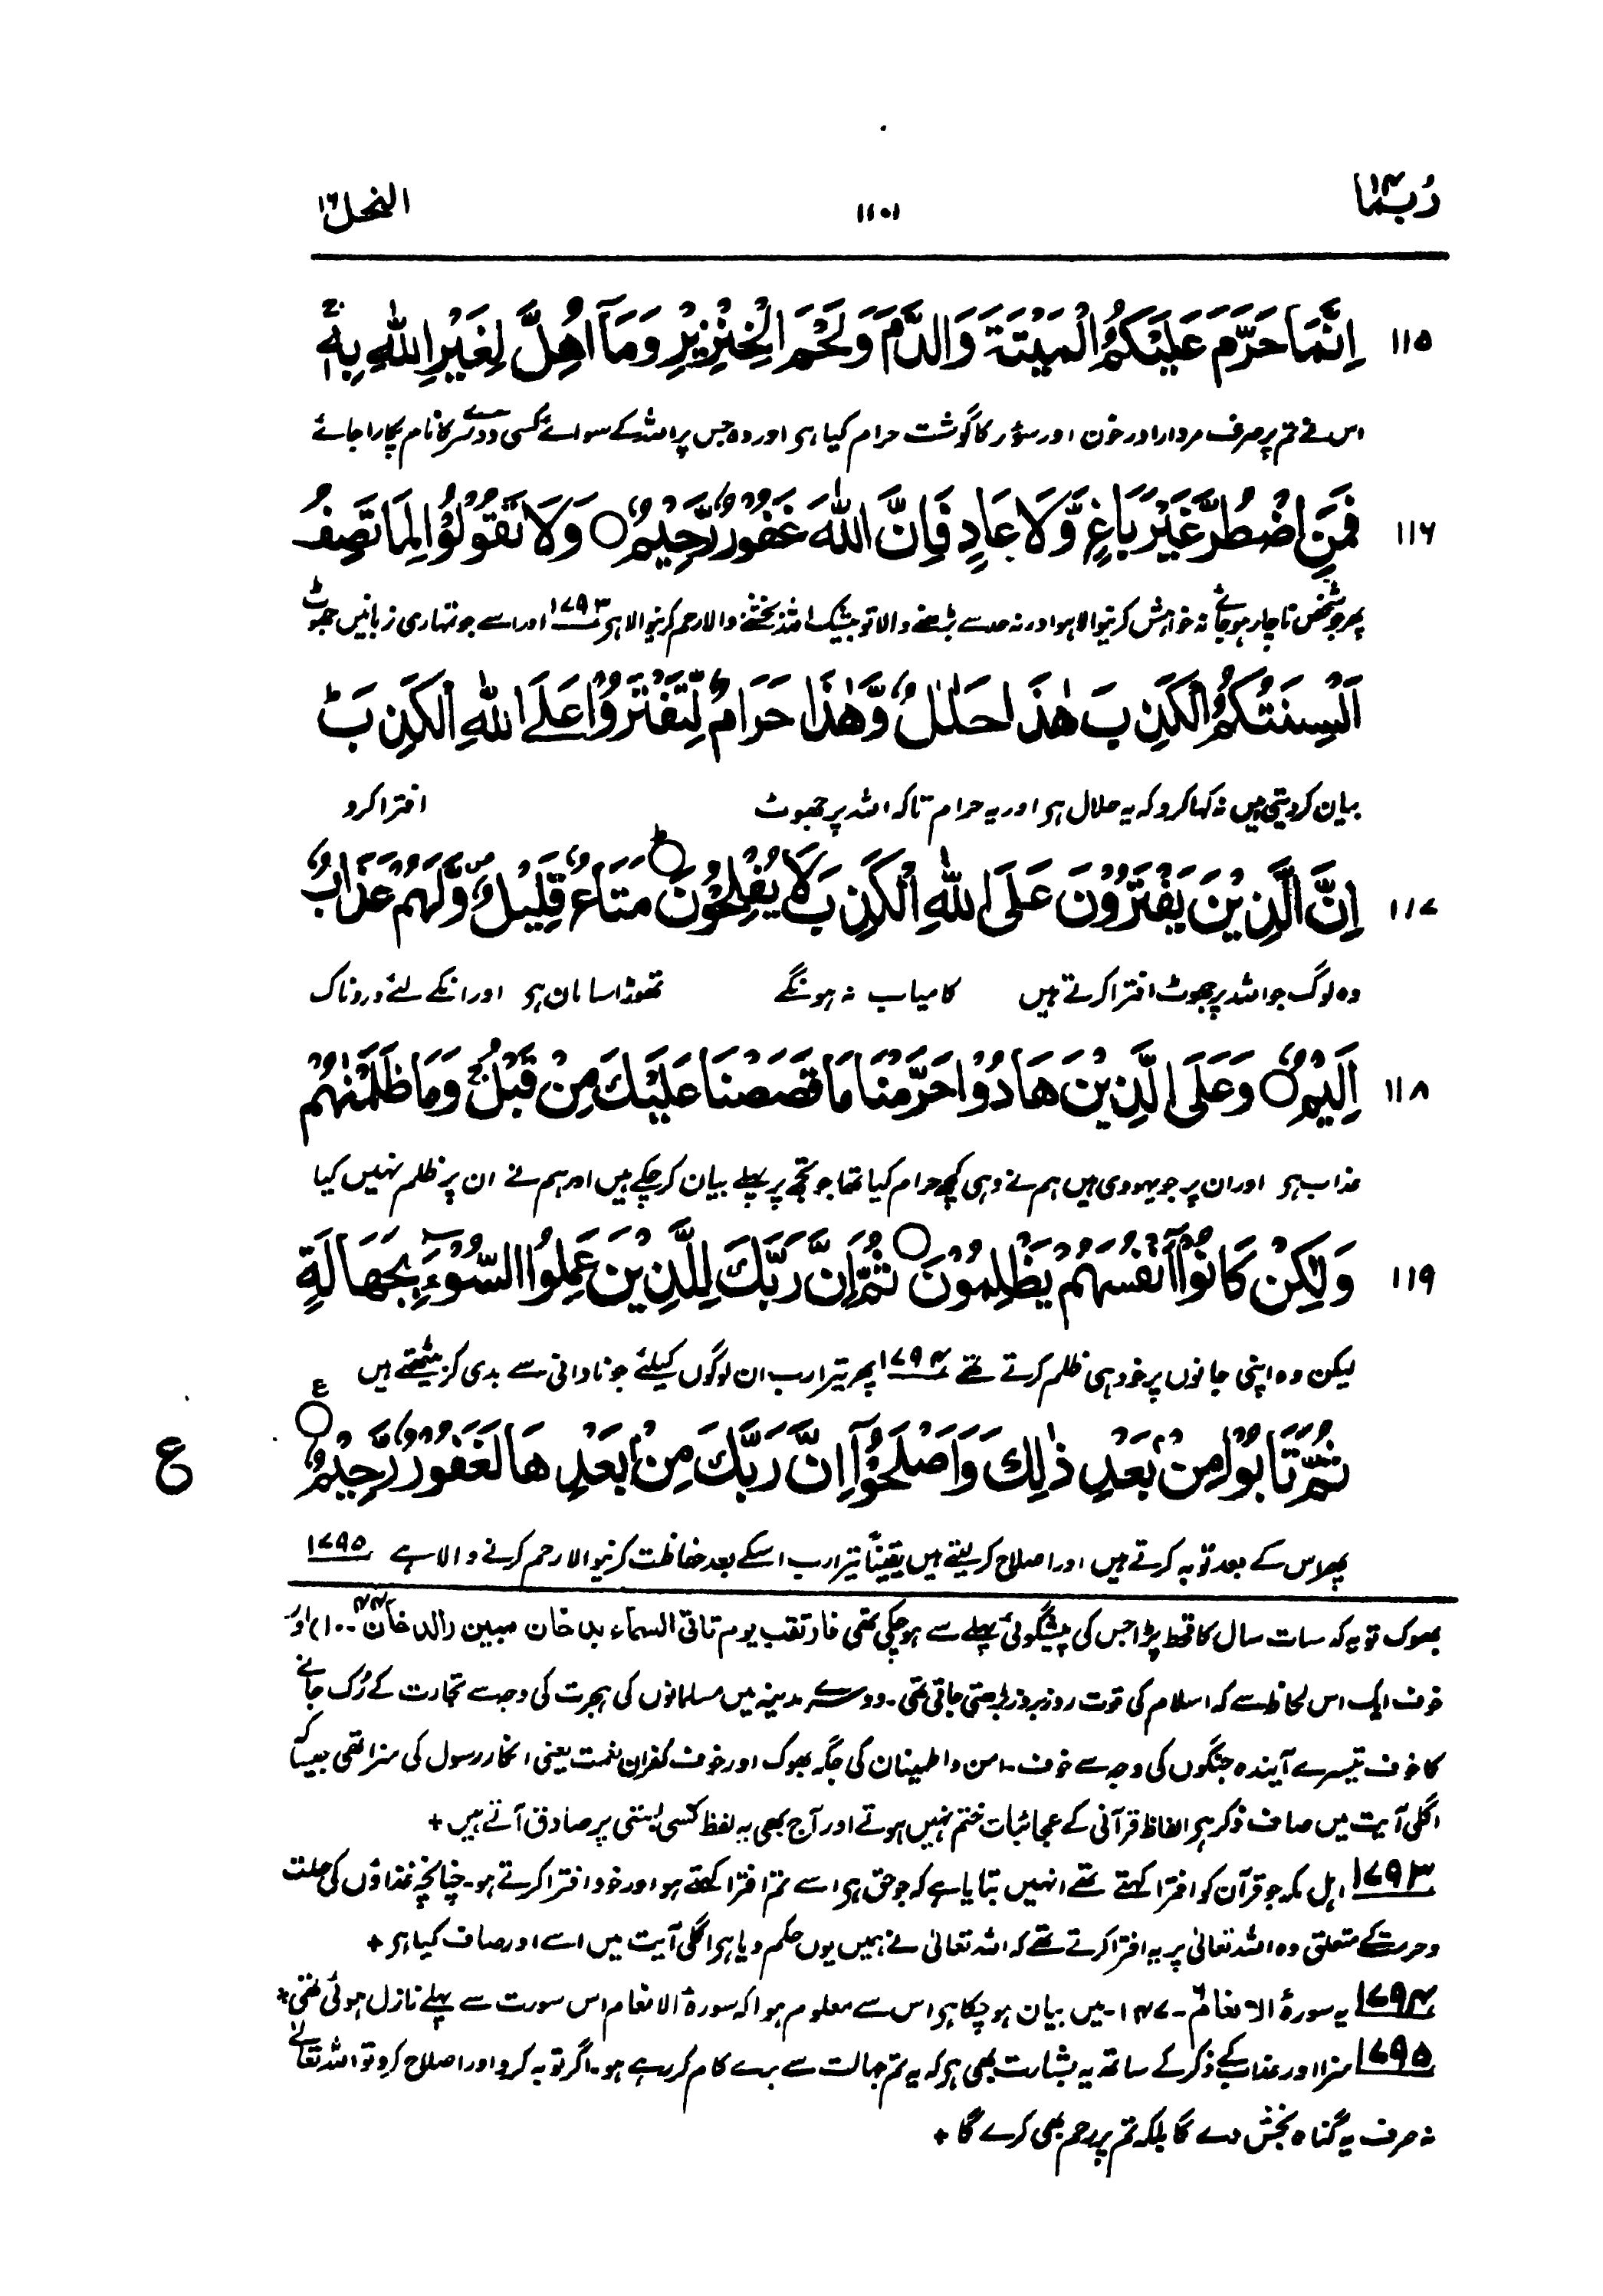 رُبَمَا ١٤
١١٠١
النحل ١٦
١١٥ اِنَّمَا حَرَّمَ عَلَيْكُمُ الْمَيْتَةَ وَالدَّمَ وَلَحْمَ الْخِنْزِيْرِ وَمَآ اُهِلَّ لِغَيْرِ اللّٰهِ بِهٖ ۚ
اس نے تم پر صرف مردار اور خون اور سؤر کا گوشت حرام کیا ہی اور وہ جس پر اللہ کے سوائے کسی دوسرے کا نام پکارا جائے
١١٦ فَمَنِ اضْطُرَّ غَيْرَ بَاغٍ وَّلَا عَادٍ فَاِنَّ اللّٰهَ غَفُوْرٌ رَّحِيْمٌ ○ وَلَا تَقُوْلُوْا لِمَا تَصِفُ
پھر جو شخص ناچار ہو جائے نہ خواہش کرنیوالا ہو اور نہ حد سے بڑھنے والا تو بیشک اللہ بخشنے والا رحم کرنیوالا ہی ۱۷۹۳ اور اسے جو تمہاری زبانیں جھوٹ
اَلْسِنَتُكُمُ الْكَذِبَ هٰذَا حَلٰلٌ وَّهٰذَا حَرَامٌ لِّتَفْتَرُوْا عَلَى اللّٰهِ الْكَذِبَ ؕ
بیان کر دیتی ہیں نہ کہا کرو کہ یہ حلال ہی اور یہ حرام تاکہ اللہ پر جھوٹ افترا کرو
١١٧ اِنَّ الَّذِيْنَ يَفْتَرُوْنَ عَلَى اللّٰهِ الْكَذِبَ لَا يُفْلِحُوْنَ ○ؕ مَتَاعٌ قَلِيْلٌ ۪ وَّلَهُمْ عَذَابٌ
وہ لوگ جو اللہ پر جھوٹ افترا کرتے ہیں کامیاب نہ ہونگے تھوڑا سا سامان ہی اور انکے لئے دردناک
١١٨ اَلِيْمٌ ○ وَعَلَى الَّذِيْنَ هَادُوْا حَرَّمْنَا مَا قَصَصْنَا عَلَيْكَ مِنْ قَبْلُ ۚ وَمَا ظَلَمْنٰهُمْ
عذاب ہی اور ان پر جو یہودی ہیں ہم نے وہی کچھ حرام کیا تھا جو تجھ پر پہلے بیان کر چکے ہیں اور ہم نے ان پر ظلم نہیں کیا
١١٩ وَلٰكِنْ كَانُوْٓا اَنْفُسَهُمْ يَظْلِمُوْنَ ○ ثُمَّ اِنَّ رَبَّكَ لِلَّذِيْنَ عَمِلُوا السُّوْٓءَ بِجَهَالَةٍ
لیکن وہ اپنی جانوں پر خود ہی ظلم کرتے تھے ۱۷۹۴ پھر تیرا رب ان لوگوں کیلئے جو نادانی سے بدی کر بیٹھتے ہیں
ثُمَّ تَابُوْا مِنْۢ بَعْدِ ذٰلِكَ وَاَصْلَحُوْٓا اِنَّ رَبَّكَ مِنْۢ بَعْدِهَا لَغَفُوْرٌ رَّحِيْمٌ ○ ع
ع
پھر اس کے بعد توبہ کرتے ہیں اور اصلاح کر لیتے ہیں یقیناً تیرا رب اسکے بعد حفاظت کرنیوالا رحم کرنے والا ہے ۱۷۹۵
بھوک تو یہ کہ سات سال کا قحط پڑا جس کی پیشگوئی پہلے سے ہو چکی تھی فارتقب یوم تاتی السماء بدخان مبین (الدخان ۴۴ ۔۱۰) اور
خوف ایک اس لحاظ سے کہ اسلام کی قوت روز بروز بڑھتی جاتی تھی۔ دوسرے مدینہ میں مسلمانوں کی ہجرت کی وجہ سے تجارت کے رُک جانے
کا خوف تیسرے آیندہ جنگوں کی وجہ سے خوف۔ امن و اطمینان کی جگہ بھوک اور خوف کفران نعمت یعنی انکار رسول کی سزا تھی جیسا کہ
اگلی آیت میں صاف ذکر ہی الفاظ قرآنی کے عجائبات ختم نہیں ہوتے اور آج بھی یہ لفظ کسی بستی پر صادق آتے ہیں +
۱۷۹۳ اہل مکہ جو قرآن کو افترا کہتے تھے انہیں بتایا ہے کہ جو حق ہی اسے تم افترا کہتے ہو اور خود افترا کرتے ہو۔ چنانچہ غذاؤں کی حلت
و حرمت کے متعلق وہ اللہ تعالیٰ پر یہ افترا کرتے تھے کہ اللہ تعالیٰ نے ہمیں یوں حکم دیا ہی اگلی آیت میں اسے اور صاف کیا ہی +
۱۷۹۴ یہ سورۂ الانعام ۶ ۔ ۱۴۷۔ میں بیان ہو چکا ہی اس سے معلوم ہوا کہ سورۂ الانعام اس سورت سے پہلے نازل ہوئی تھی +
۱۷۹۵ سزا اور عذاب کے ذکر کے ساتھ یہ بشارت بھی ہی کہ یہ تم جہالت سے برے کام کر رہے ہو۔ اگر توبہ کرو اور اصلاح کرو تو اللہ تعالیٰ
نہ صرف یہ گناہ بخش دے گا بلکہ تم پر رحم بھی کرے گا +